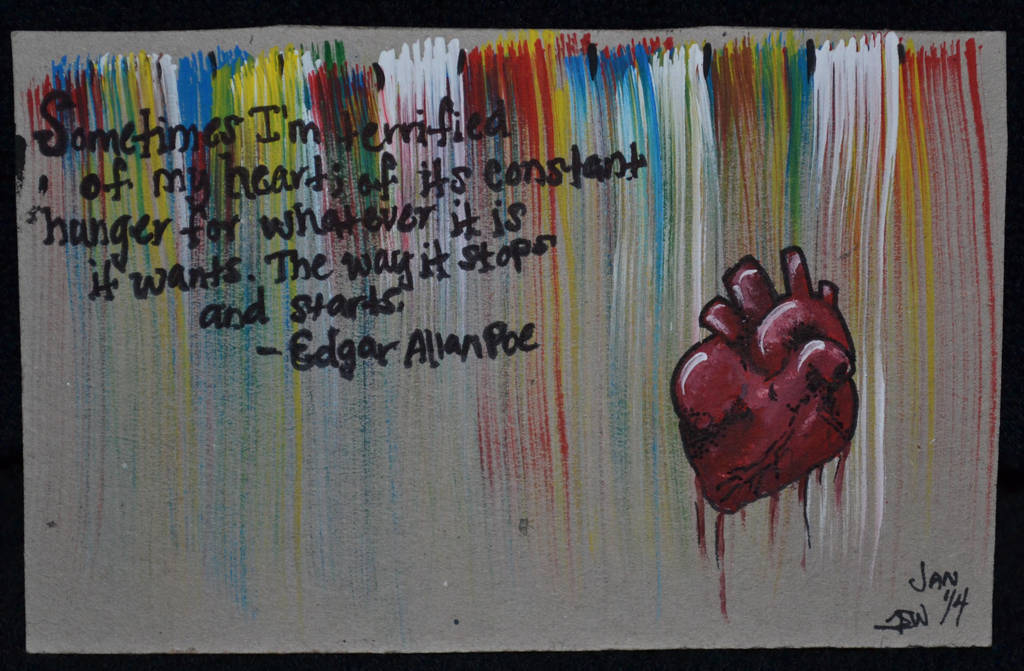 Sometimes I'm terrified
of my heart; of its constant
hunger for whatever it is
it wants. The way it stops
and starts.
- Edgar Allan Poe
JAN
JSW 1/4